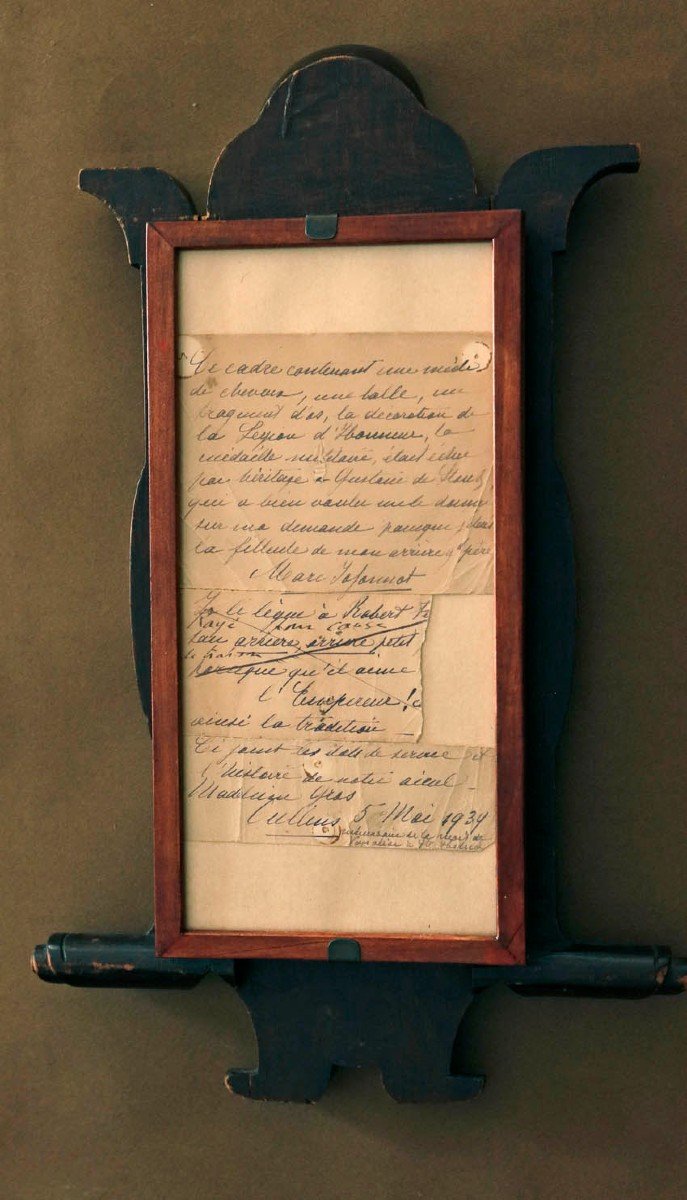 Ce cadre contenant une mèche
de cheveux, une balle, un
fragment d'os, la décoration de
la Legion d'Honneur, la
médaille militaire, était échu
par héritage à Gustave de
qui a bien voulu me le donner
sur ma demande puisque je suis
la filleule de mon arrière gd père
Marc
Je le lègue à Robert
Rayé pour cause
son arrière, arrière petit
de trahison
puisque qu'il aime
l'Empereur! &
ainsi la tradition
Ci joint les états de service et
l'histoire de notre aieul
Madeleine Gros
Cullins 5 Mai 1934
anniversaire de la mort de